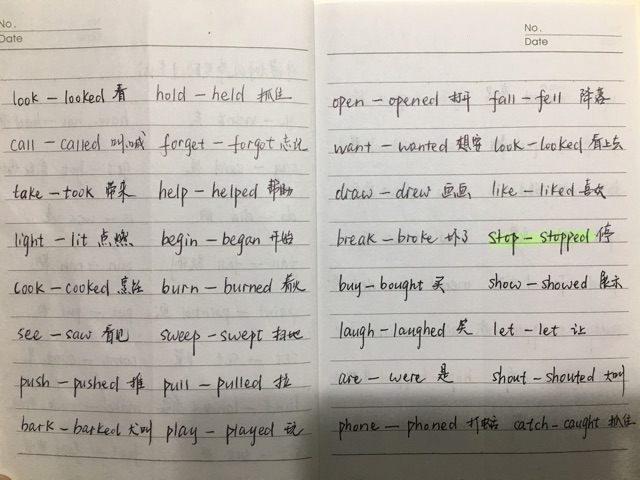 No.
Date
look – looked 看 hold – held 抓住
call – called 叫喊 forget – forgot 忘记
take – took 带来 help – helped 帮助
light – lit 点燃 begin – began 开始
cook – cooked 烹饪 burn – burned 着火
see – saw 看见 sweep – swept 扫地
push – pushed 推 pull – pulled 拉
bark – barked 犬叫 play – played 玩
No.
Date
open – opened 打开 fall – fell 降落
want – wanted 想要 look – looked 看上去
draw – drew 画画 like – liked 喜欢
break – broke 坏了 stop – stopped 停
buy – bought 买 show – showed 展示
laugh – laughed 笑 let – let 让
are – were 是 shout – shouted 大叫
phone – phoned 打电话 catch – caught 抓住